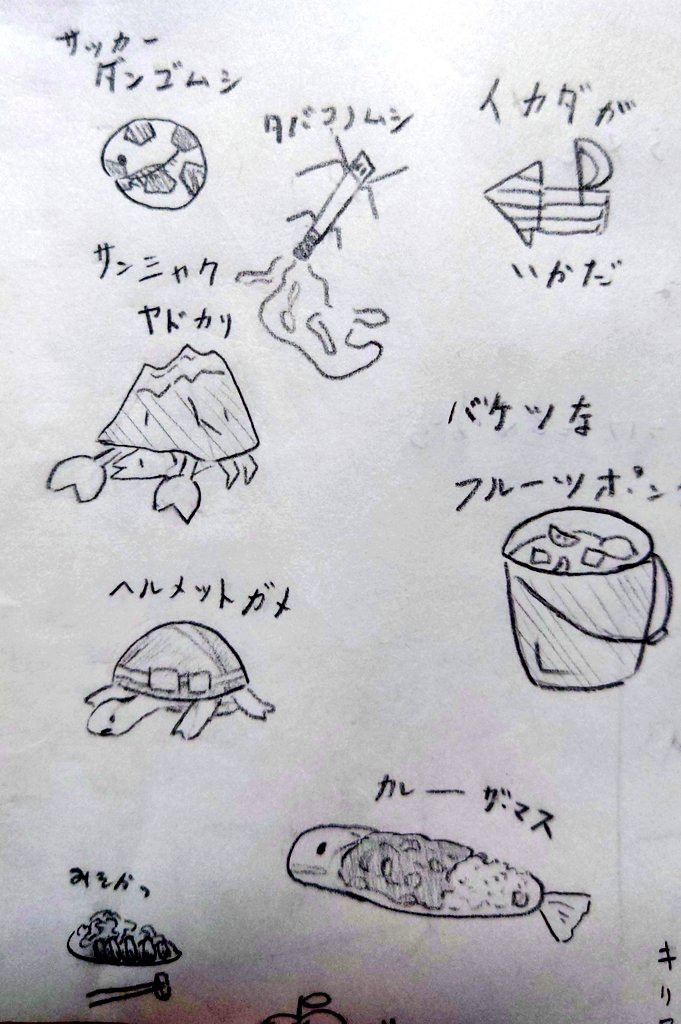 サッカー
ダンゴムシ
タバコノムシ
イカダが
いかだ
サンミャク
ヤドカリ
バケツな
フルーツポン
ヘルメットガメ
カレーザマス
みそかつ
キリ